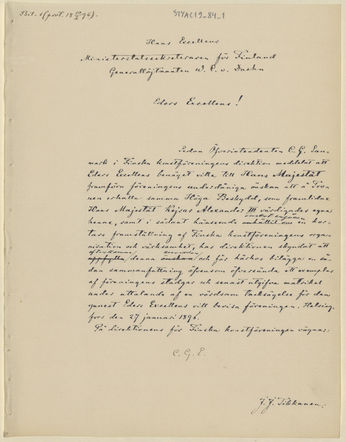 Bil. 1 (prot. 18 27/1 96).
STYAC19_84_1
Hans Excellens
Ministerstatssekreteraren för Finland
Generallöjtnanten W. C. v. Daehn
Eders Excellens!
Sedan Öfverintendenten C. G. San-
mark i Finska konstföreningens direktion meddelat att
Eders Excellens benäget ville till Hans Majestät
framföra föreningens underdåniga önskan att å Trö-
nen erhålla samma Höga Beskydd, som framlidne
Hans Majestät Kejsar Alexander III värdigades egna
henne, samt i sådant hänseende en kor-
tare framställning af Finska konstföreningens orga-
nisation och värksamhet, har direktionen skyndat att
uppfylla denna och får härhos bilägga en så-
dan sammanfattning äfvensom öfversända ett exemplar
af föreningens stadgar och senast utgifna matrikel
under uttalande af en vördsam tacksägelse för den
ynnest Eders Excellens vill bevisa föreningen. Helsing-
fors den 27 januari 1896.
På direktionens för Finska konstföreningen vägnar:
C. G. E.
J. J. Tikkanen.